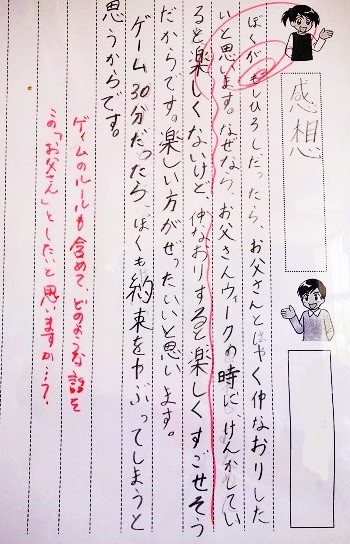 感想
ぼくがもしひろしだったら、お父さんとはやく仲なおりした
いと思います。なぜなら、お父さんウィークの時に、けんかしてい
ると楽しくないけど、仲なおりすると楽しくすごせそう
だからです。楽しい方がぜったいいと思います。
ゲーム30分だったら、ぼくも約束をやぶってしまうと
思うからです。
ゲームのルールも含めて、どのような話を
この「お父さん」としたいと思いますか…?